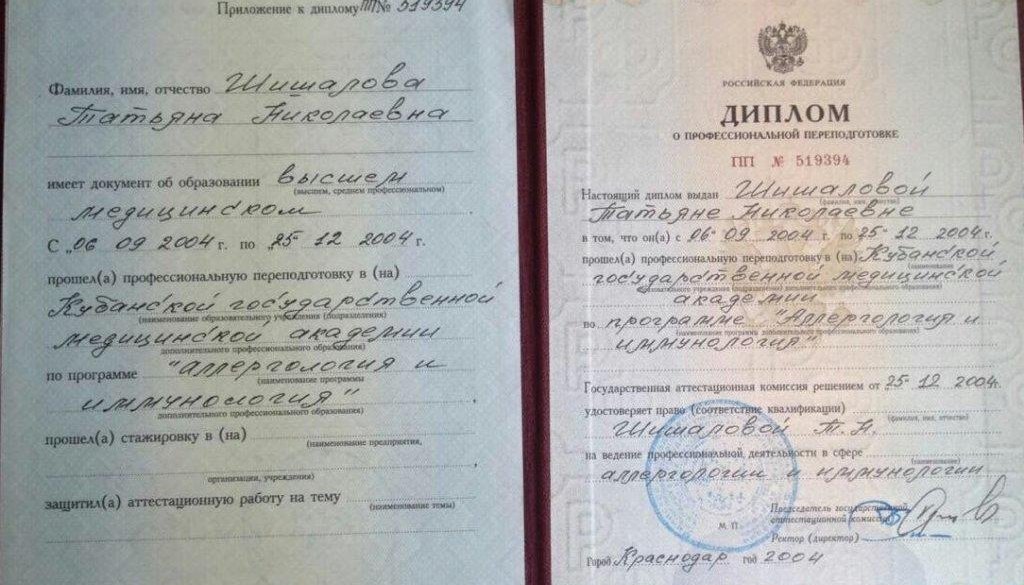 Приложение к диплому ПП № 519394
Фамилия, имя, отчество Шишалова
Татьяна Николаевна
имеет документ об образовании высшем
(высшем, среднем профессиональном)
медицинском.
С „06 09 2004 г. по 25 12 2004 г.
прошел(а) профессиональную переподготовку в (на)
Кубанской государственной
(наименование образовательного учреждения (подразделения)
медицинской академии
дополнительного профессионального образования)
по программе "аллергология и
(наименование программы
иммунология",
дополнительного профессионального образования)
прошел(а) стажировку в (на)
(наименование предприятия,
организации, учреждения)
защитил(а) аттестационную работу на тему
(наименование темы)
РОССИЙСКАЯ ФЕДЕРАЦИЯ
ДИПЛОМ
О ПРОФЕССИОНАЛЬНОЙ ПЕРЕПОДГОТОВКЕ
ПП № 519394
Настоящий диплом выдан Шишаловой
(фамилия, имя, отчество)
Татьяне Николаевне
в том, что он(а) с „06" 09 2004 г. по 25 12 2004 г.
прошел(а) профессиональную переподготовку в (на) Кубанской
(наименование
государственной медицинской
образовательного учреждения (подразделения) дополнительного профессионального образования)
академии
по программе "Аллергология и
(наименование программы дополнительного профессионального образования)
иммунология"
Государственная аттестационная комиссия решением от 25 12 2004г.
удостоверяет право (соответствие квалификации)
(фамилия, имя, отчество)
Шишаловой Т.Н.
на ведение профессиональной деятельности в сфере
(наименование)
аллергологии и иммунологии
Председатель государственной
аттестационной комиссии
М П
Ректор (директор)
Город Краснодар год 2004